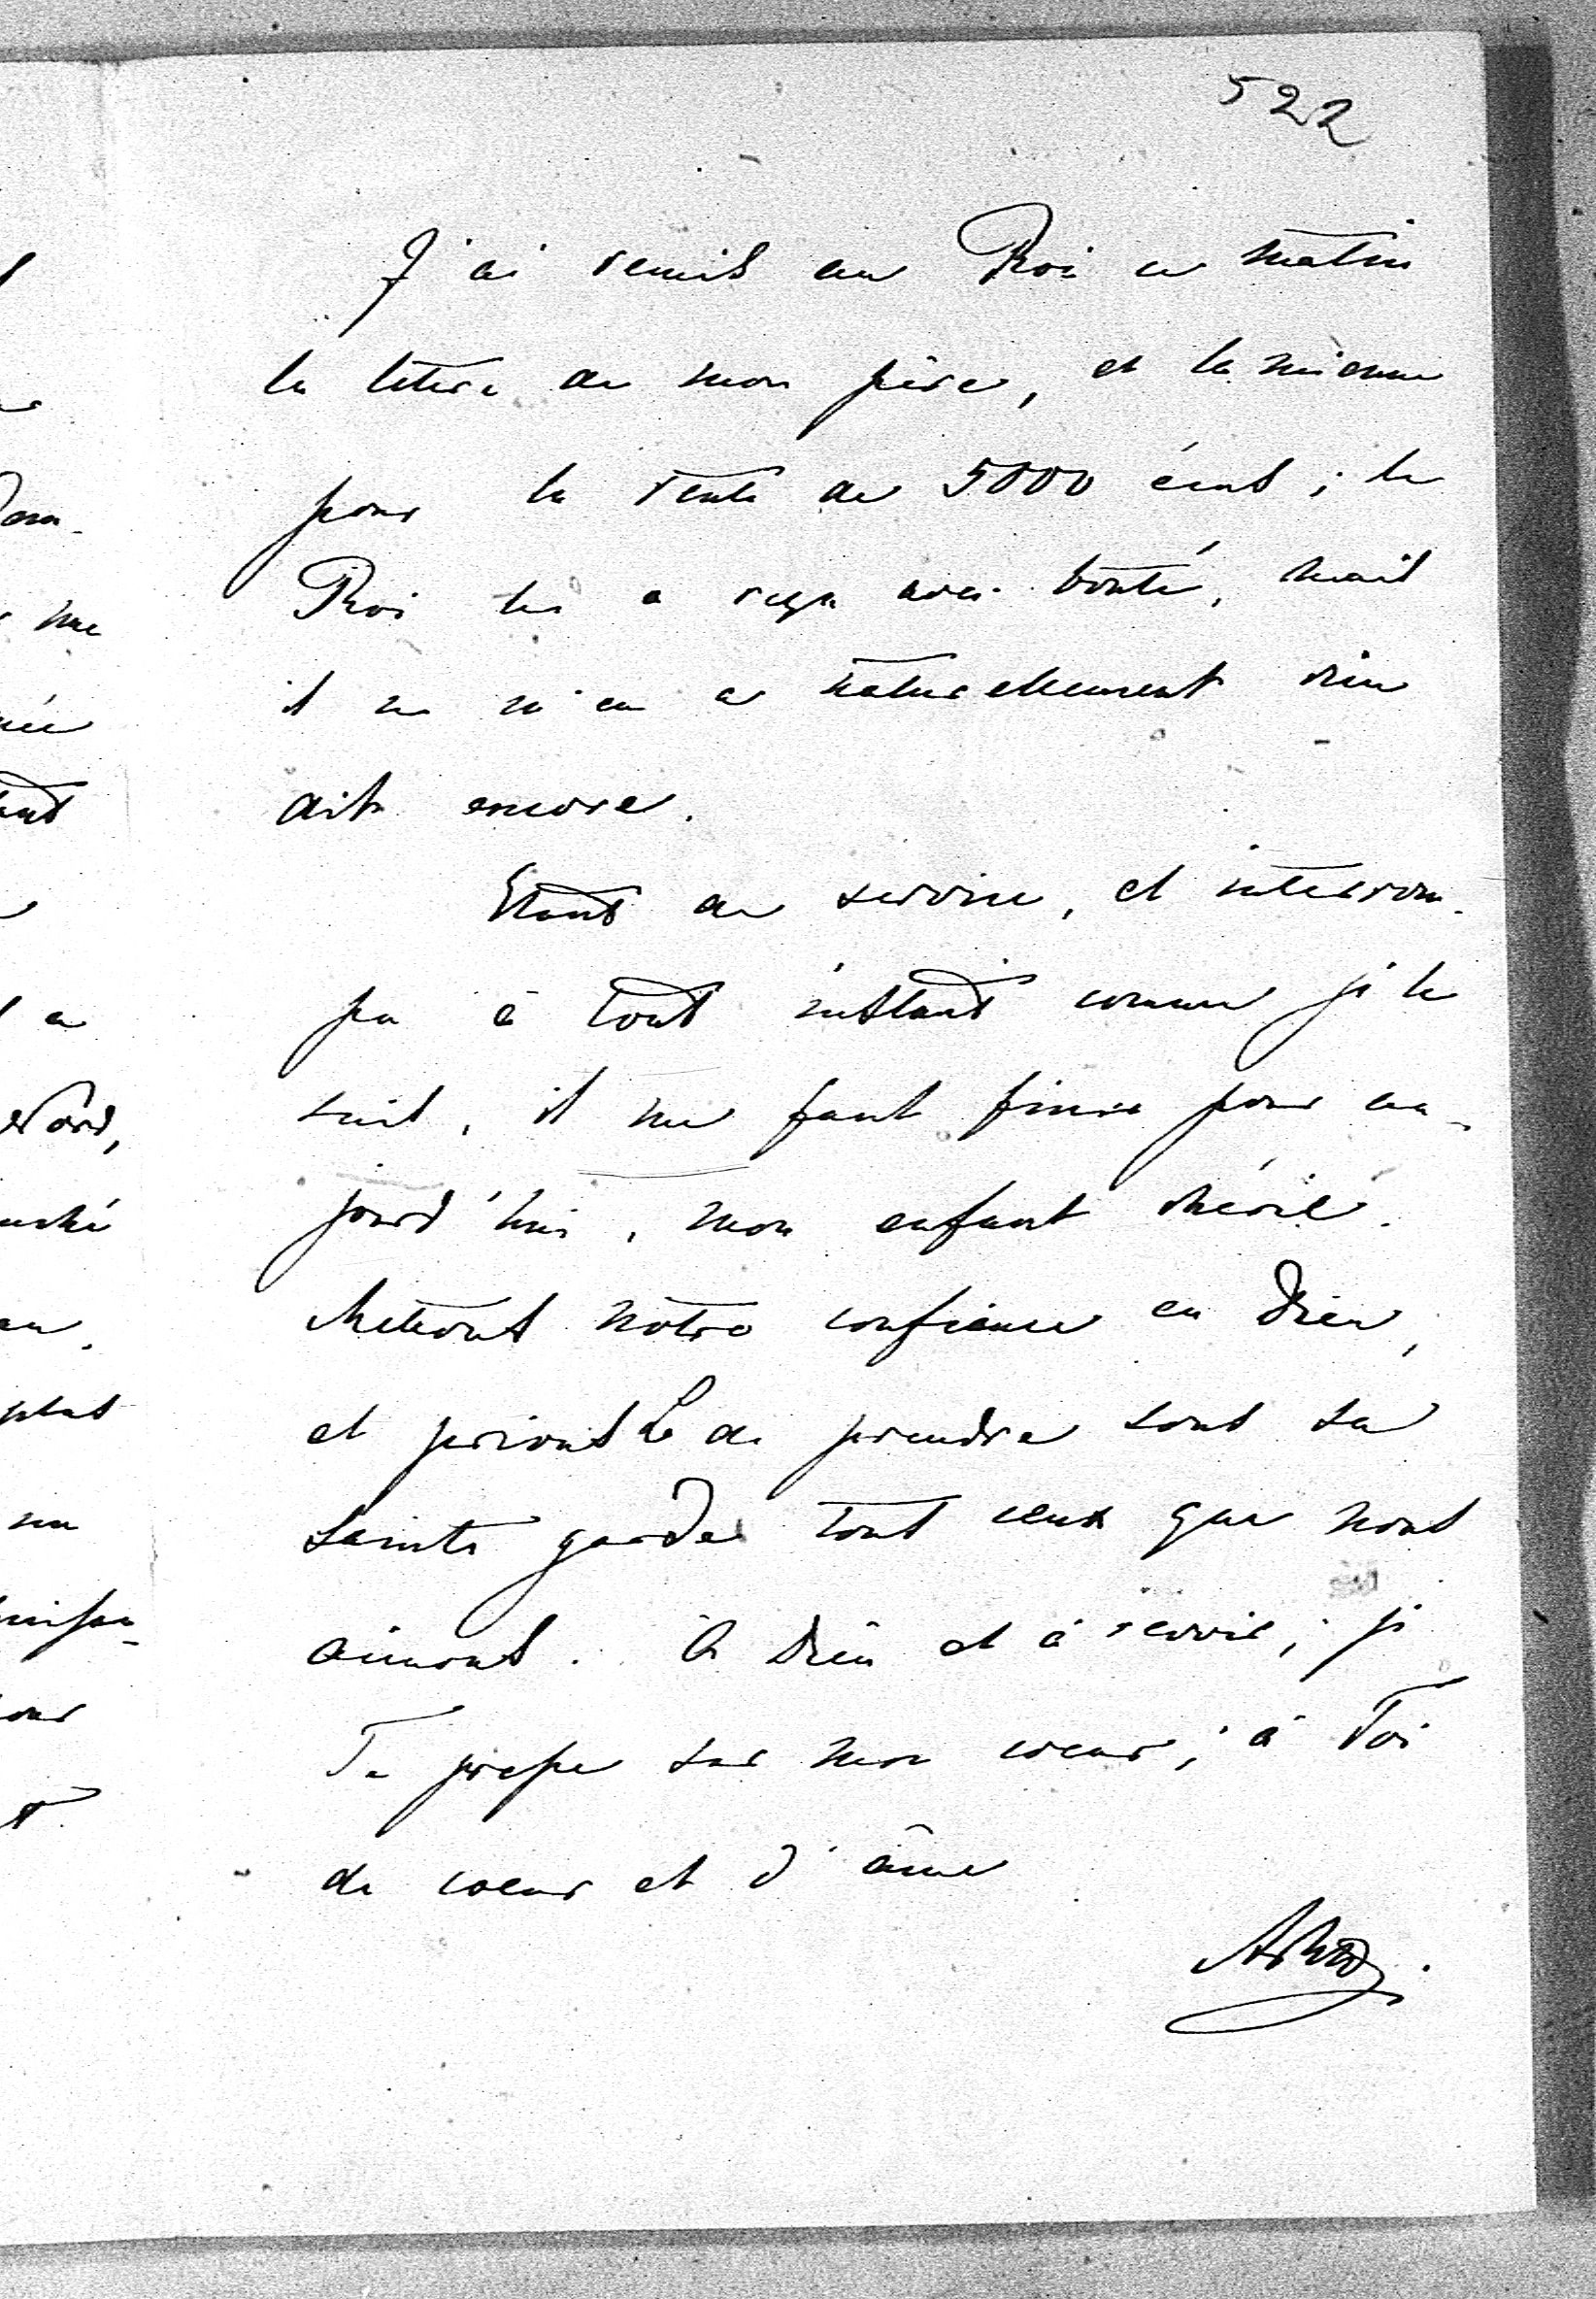 522
J'ai remis au Roi ce matin
la lettre de mon père, et la mienne
pour la rente de 5000 écus; le
Roi les a reçu avec bonté, mais
il ne m'en a naturellement rien
dit encore.
Etant de service, et interrom-
pu à tout instant comme je le
suis, il me faut finir pour au-
jourd'hui, mon enfant chérie.
Mettons nôtre confiance en Dieu,
et prions Le de prendre sous sa
sainte garde tous ceux que nous
aimons. à Dieu et à revoir; je
Te presse sur mon coeur; à Toi
de coeur et d'âme